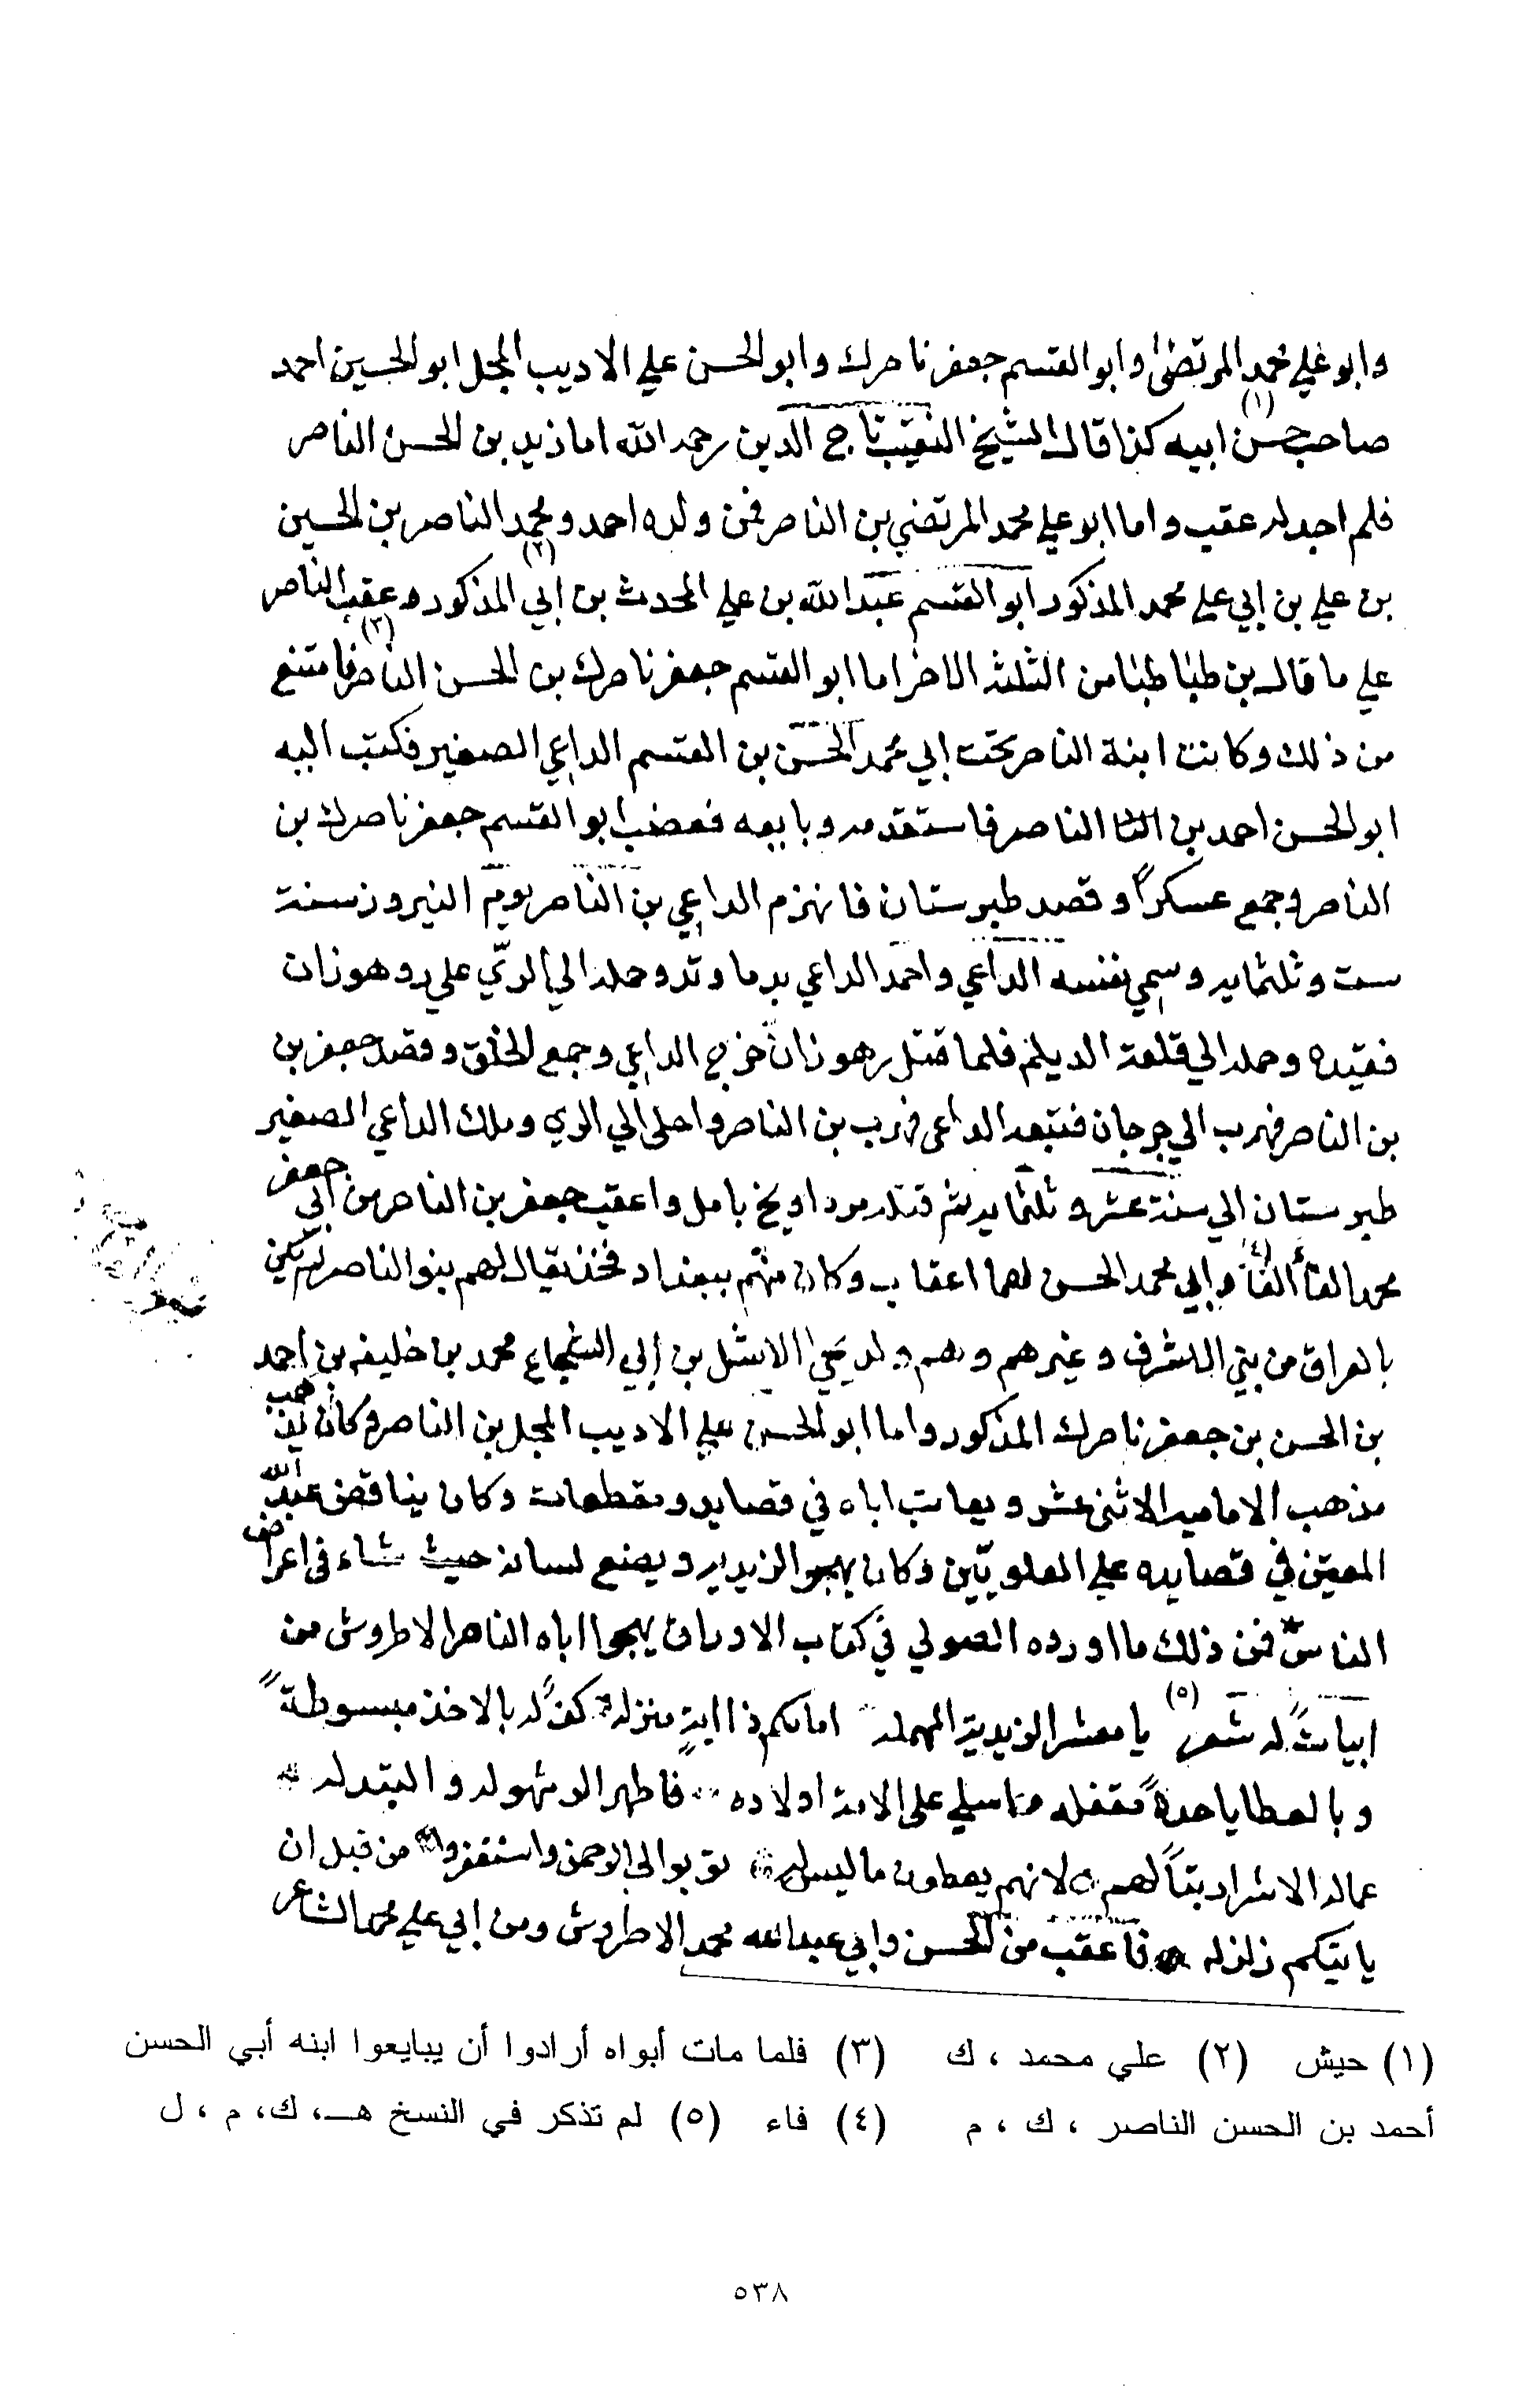 وابو علي محمد المرتضى وابو القسم جعفر ناصرك وابو الحسن علي الاديب المجل ابو الحسين احمد
صاحب حسن (١) ابيه كذا قال الشيخ النقيب تاج الدين رحمه الله اما زيد بن الحسن الناصر
فلم اجد له عقب واما ابو علي محمد المرتضي بن الناصر فمن ولده احمد ومحمد الناصر بن الحسين
بن علي بن ابي علي محمد المذكور ابو القسم عبد الله بن علي المحدث بن ابي (٢) المذكور ه عقب الناصر
علي ما قال بن طباطبا من الثلثه الاخر اما ابو القسم جعفر ناصرك بن الحسن الناصر (٣) فامتنع
من ذلك وكانت ابنة الناصر تحت ابي محمد الحسن بن القسم الداعي الصغير فكتب اليه
ابو الحسن احمد بن الناصر فاستقدمه وبايعه فغضب ابو القسم جعفر ناصرك بن
الناصر وجمع عسكراً وقصد طبرستان فانهزم الداعي بن الناصر يوم النيروز سنة
ست وثلثمايه وسمي نفسه الداعي واحمد الداعي بدماوند وحمله الي الري علي رهوزان
فقيده وحمله الي قلعة الديلم فلما قتل رهوزان خرج الداعي وجمع الخلق وقصد جعفر بن
بن الناصر فهرب الي جرجان فتبعه الداعى فهرب بن الناصر واجلى الي الري وملك الداعي الصغير
طبرستان الي سنة عشر وثلثمايه ثم قتله مرداويخ بامل واعقب جعفر بن الناصر من ابي جعفر
محمد الفأ الفأ (٤) وابي محمد الحسن لهما اعقاب وكان منهم ببغداد فخذ يقال لهم بنو الناصر لم يكن
بالعراق من بني الاشرف وغيرهم وهم ولد يحيى الاشل بن ابي الشجاع محمد بن خليفه بن احمد
بن الحسن بن جعفر ناصرك المذكور واما ابو الحسن علي الاديب المجل بن الناصر وكان يذهب
مذهب الاماميه الاثنى عشر ويعاتب اباه في قصايد ومقطعات وكان يناقض عبد الله
المعتز في قصايده علي العلويّين وكان يهجو الزيديه ويضع لسانه حيث شاء في اعراض
الناس فمن ذلك ما اورده الصولي في كتاب الاوراق يهجوا اباه الناصر الاطروش من
ابيات له شعر (٥) يا معشر الزيدية المهمله امامكم ذا اية منزله كفٌ له بالاخذ مبسوطة
وبالعطايا جدةً مقفله علي الامة اولاده فاظهر الرشوة والبتدله
عماله الاشرار تباً لهم لانهم يعطون ما ليس له توبوا الى الرحمن واستغفروا من قبل ان
ياتيكم زلزله فاعقب من الحسن وابي عبد الله محمد الاطروش ومن ابي علي محمد الشاعر
(١) حيش (٢) علي محمد ، ك (٣) فلما مات أبواه أرادوا أن يبايعوا ابنه أبي الحسن
أحمد بن الحسن الناصر ، ك ، م (٤) فاء (٥) لم تذكر في النسخ هـ، ك، م ، ل
٥٣٨